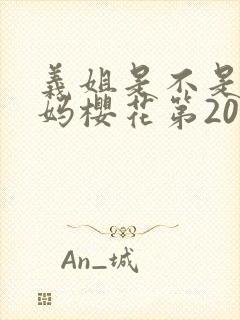 義姐是不是
妈櫻花第20
An_城